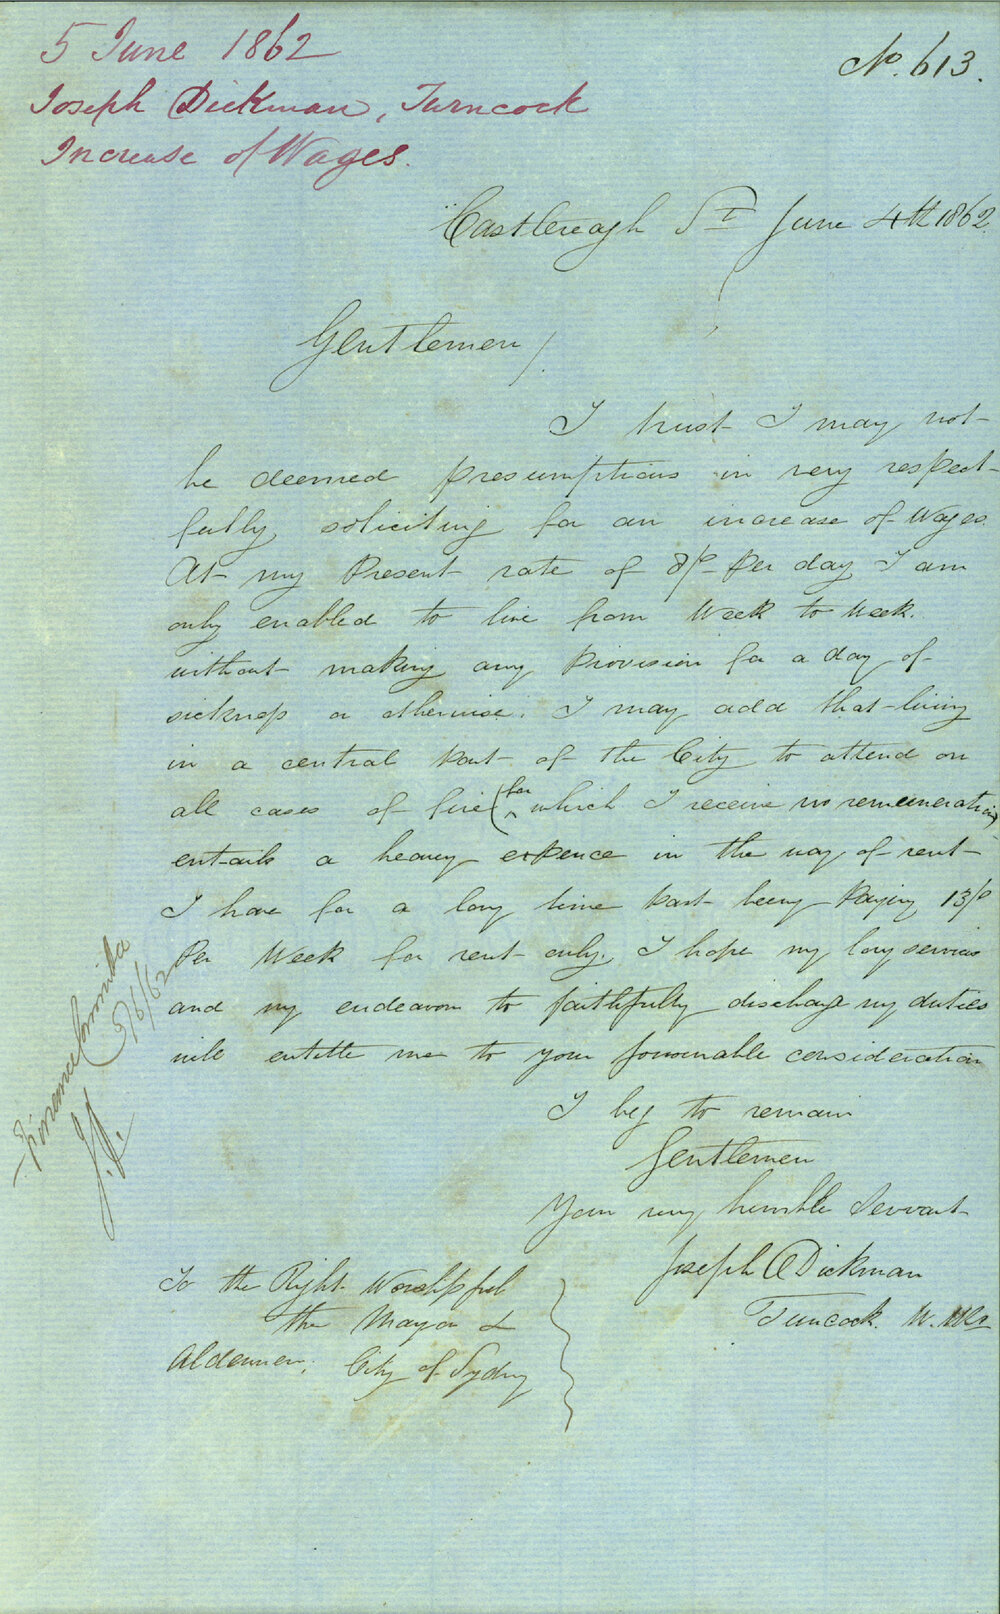 5 June 1862
No. 613.
Joseph Dickman, Turncock
Increase of Wages.
Castlereagh St June 4th 1862
Gentlemen/.
I trust I may not
be deemed presumptious in very respect-
fully soliciting for an increase of Wages.
At my Present rate of 8/- Per day I am
only enabled to live from Week to Week.
without making any Provision for a day of
sickness or otherwise. I may add that living
in a central part of the City to attend on
all cases of fire (for which I receive no remuneration)
entails a heavy expence in the way of rent
I have for a long time past being Paying 13/-
Per Week for rent only. I hope my long services
and my endeavor to faithfully discharge my duties
will entitle me to your favourable consideration
I beg to remain
Gentlemen
Your very humble Servant
Joseph Dickman
Turncock. W.
To the Right Worshipful
the Mayor &
Aldermen, City of Sydney
5/6/62
J.